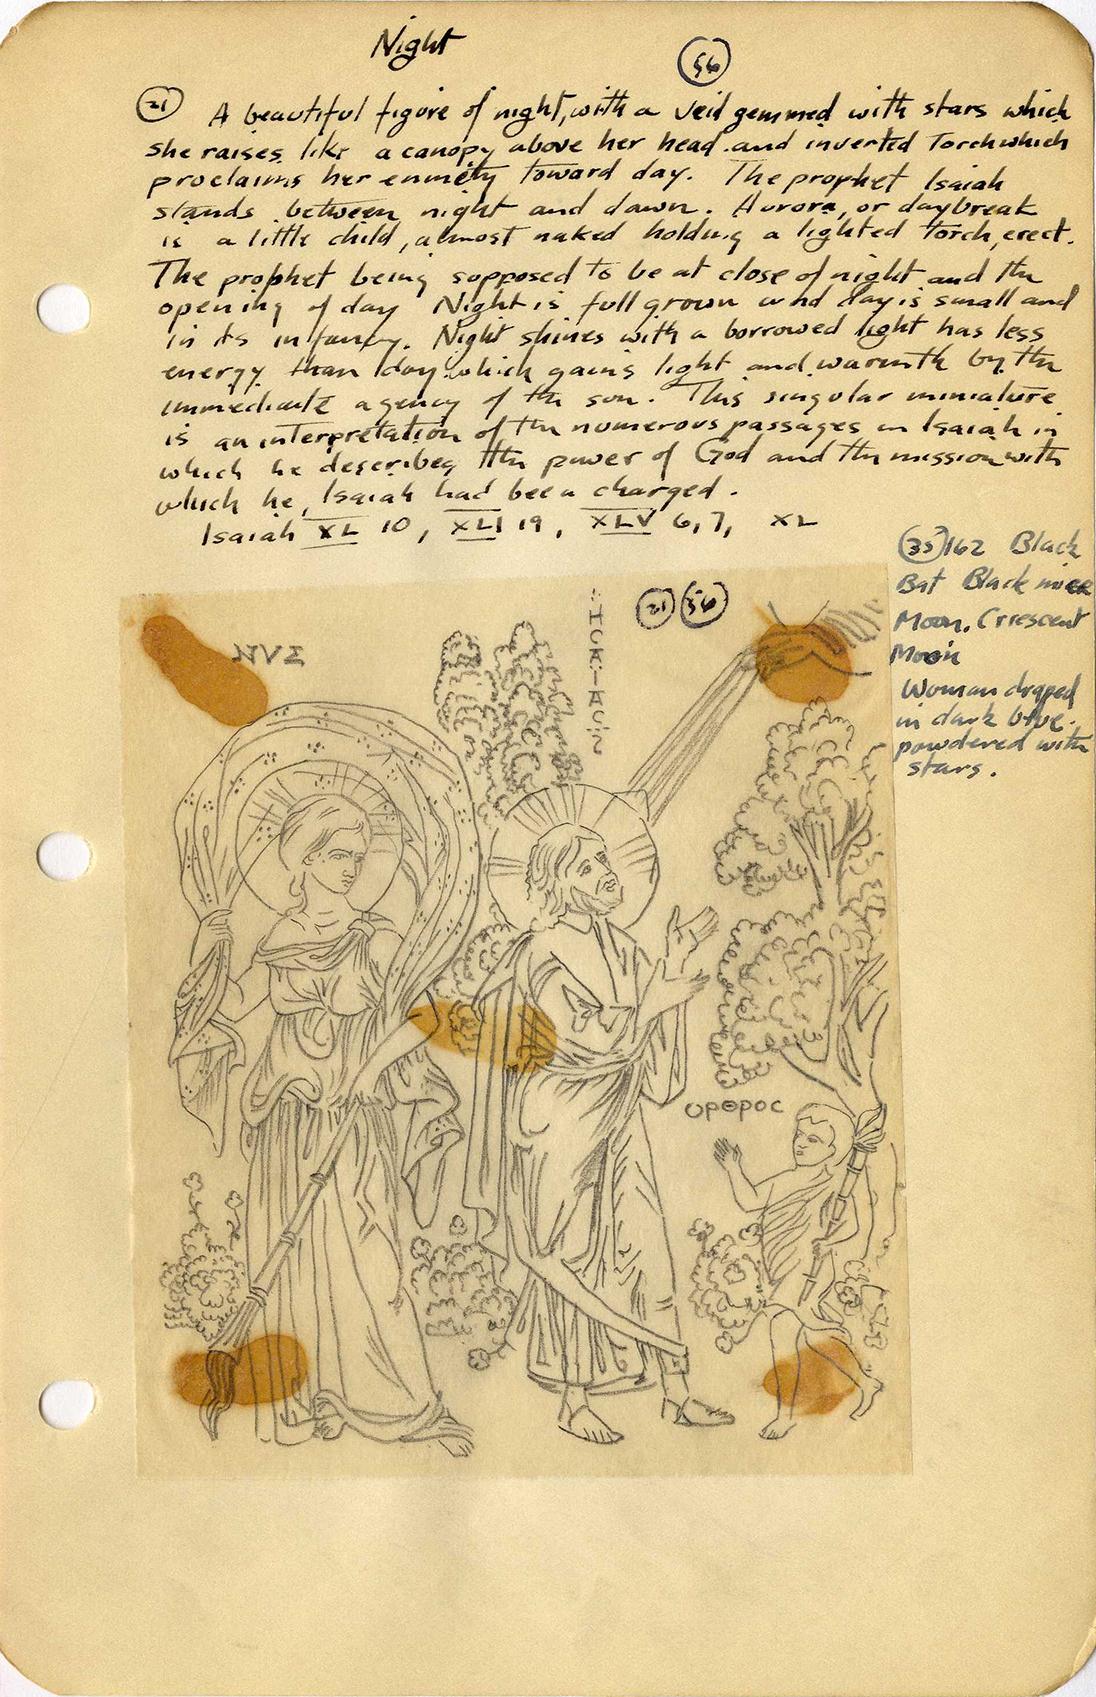 Night
56
21 A beautiful figure of night, with a veil gemmed with stars which
she raises like a canopy above her head and inverted Torch which
proclaims her enmety toward day. The prophet Isaiah
stands between night and dawn. Aurora, or daybreak
is a little child, almost naked holding a lighted torch, erect.
The prophet being supposed to be at close of night and the
opening of day Night is full grown and day is small and
in its infancy. Night shines with a borrowed light has less
energy than day which gains light and warmth by the
immediate agency of the son. This singular miniature
is an interpretation of the numerous passages in Isaiah in
which he describes the power of God and the mission with
which he, Isaiah had been charged.
Isaiah XL 10, XLI 19, XLV 6, 7, XL
35 162 Black
Bat Black
Moon. Crescent
Moon
Woman draped
in dark blue
powdered with
stars.
21 56
ΝVΣ
ΟΡΘΡΟC